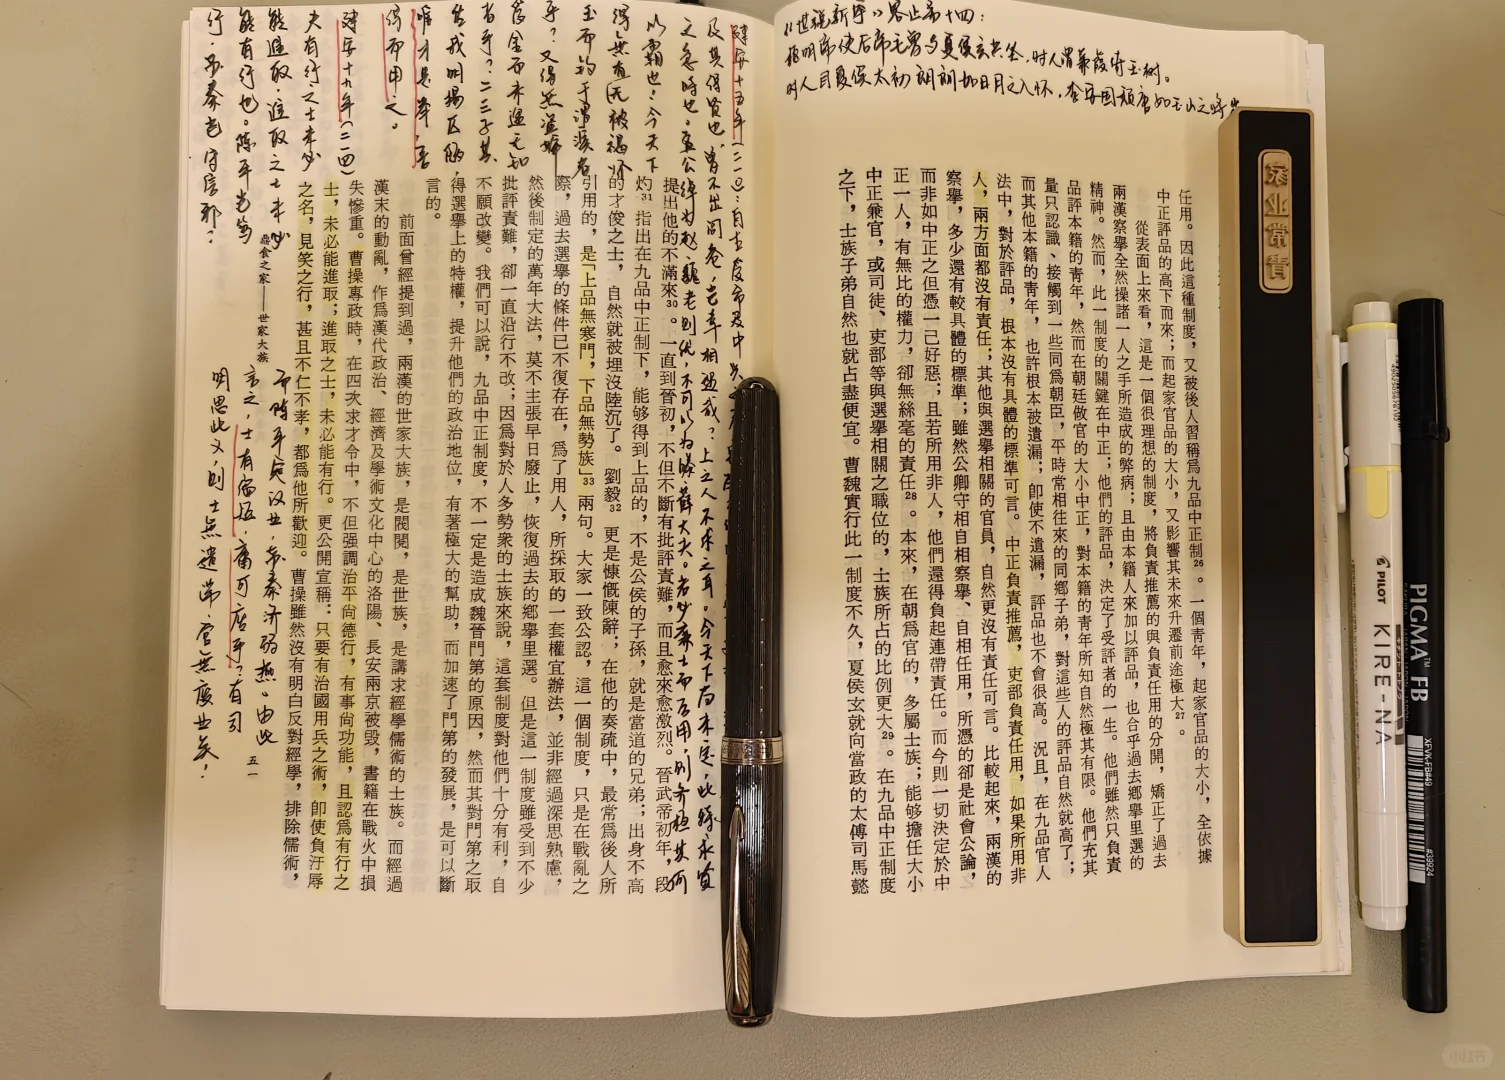 《世说新语》容止第十四：
魏明帝使后弟毛曾与夏侯玄共坐，时人谓蒹葭倚玉树。
时人目夏侯太初朗朗如日月之入怀，李安国颓唐如玉山之将
任用。因此這種制度，又被後人習稱爲九品中正制26。一個青年，起家官品的大小，全依據
中正評品的高下而來；而起家官品的大小，又影響其未來升遷前途極大27。
從表面上來看，這是一個很理想的制度，將負責推薦的與負責任用的分開，矯正了過去
兩漢察舉全然操諸一人之手所造成的弊病；且由本籍人來加以評品，也合乎過去鄉舉里選的
精神。然而，此一制度的關鍵在中正；他們的評品，決定了受評者的一生。他們雖然只負責
品評本籍的青年，然而在朝廷做官的大小中正，對本籍的青年所知自然極其有限。他們充其
量只認識、接觸到一些同爲朝臣，平時常相往來的同鄉子弟，對這些人的評品自然就高了；
而其他本籍的青年，也許根本被遺漏；卽使不遺漏，評品也不會很高。況且，在九品官人
法中，對於評品，根本沒有具體的標準可言。中正負責推薦，吏部負責任用，如果所用非
人，兩方面都沒有責任；其他與選舉相關的官員，自然更沒有責任可言。比較起來，兩漢的
察舉，多少還有較具體的標準；雖然公卿守相自相察舉、自相任用，所憑的卻是社會公論，
而非如中正之但憑一己好惡；且若所用非人，他們還得負起連帶責任。而今則一切決定於中
正一人，有無比的權力，卻無絲毫的責任28。本來，在朝爲官的，多屬士族；能够擔任大小
中正兼官，或司徒、吏部等與選舉相關之職位的，士族所占的比例更大29。在九品中正制度
之下，士族子弟自然也就占盡便宜。曹魏實行此一制度不久，夏侯玄就向當政的太傅司馬懿
建安十五年（二一〇）：自古受命及中
及其得贤也，曾不出闾巷，岂幸相遇哉？上之人不求之耳。今天下尚未定，此特求贤
之急时也。孟公绰为赵、魏老则优，不可以为滕、薛大夫。若必廉士而后用，则齐桓其何
以霸世！今天下
得无有被褐怀
玉而钓于渭滨者
乎？又得无盗嫂
受金而未遇无知
者乎？二三子其
佐我明扬仄陋，
唯才是举，吾
得而用之。
建安十九年（二一四）
夫有行之士未必
能进取，进取之士未必
能有行也。陈平岂笃
行，苏秦岂守信邪？
而陈平定汉业，苏秦济弱燕。由此
言之，士有偏短，庸可废乎？有司
明思此义，则士无遗滞，官无废业矣！
提出他的不滿來30。一直到晉初，不但不斷有批評責難，而且愈來愈激烈。晉武帝初年，段
灼31指出在九品中正制下，能够得到上品的，不是公侯的子孫，就是當道的兄弟；出身不高
的才俊之士，自然就被埋沒陸沉了。劉毅32更是慷慨陳辭；在他的奏疏中，最常爲後人所
引用的，是「上品無寒門，下品無勢族」33兩句。大家一致公認，這一個制度，只是在戰亂之
際，過去選舉的條件已不復存在，爲了用人，所採取的一套權宜辦法，並非經過深思熟慮，
然後制定的萬年大法，莫不主張早日廢止，恢復過去的鄉舉里選。但是這一制度雖受到不少
批評責難，卻一直沿行不改；因爲對於人多勢衆的士族來說，這套制度對他們十分有利，自
不願改變。我們可以說，九品中正制度，不一定是造成魏晉門第的原因，然而其對門第之取
得選舉上的特權，提升他們的政治地位，有著極大的幫助，而加速了門第的發展，是可以斷
言的。
前面曾經提到過，兩漢的世家大族，是閥閱，是世族，是講求經學儒術的士族。而經過
漢末的動亂，作爲漢代政治、經濟及學術文化中心的洛陽、長安兩京被毀，書籍在戰火中損
失慘重。曹操專政時，在四次求才令中，不但强調治平尚德行，有事尚功能，且認爲有行之
士，未必能進取；進取之士，未必能有行。更公開宣稱：只要有治國用兵之術，卽使負汙辱
之名，見笑之行，甚且不仁不孝，都爲他所歡迎。曹操雖然沒有明白反對經學，排除儒術，
鼎食之家——世家大族
五一
PILOT KIRE-NA
PIGMA™ FB
XFVK-FB#49
#39924
小红书